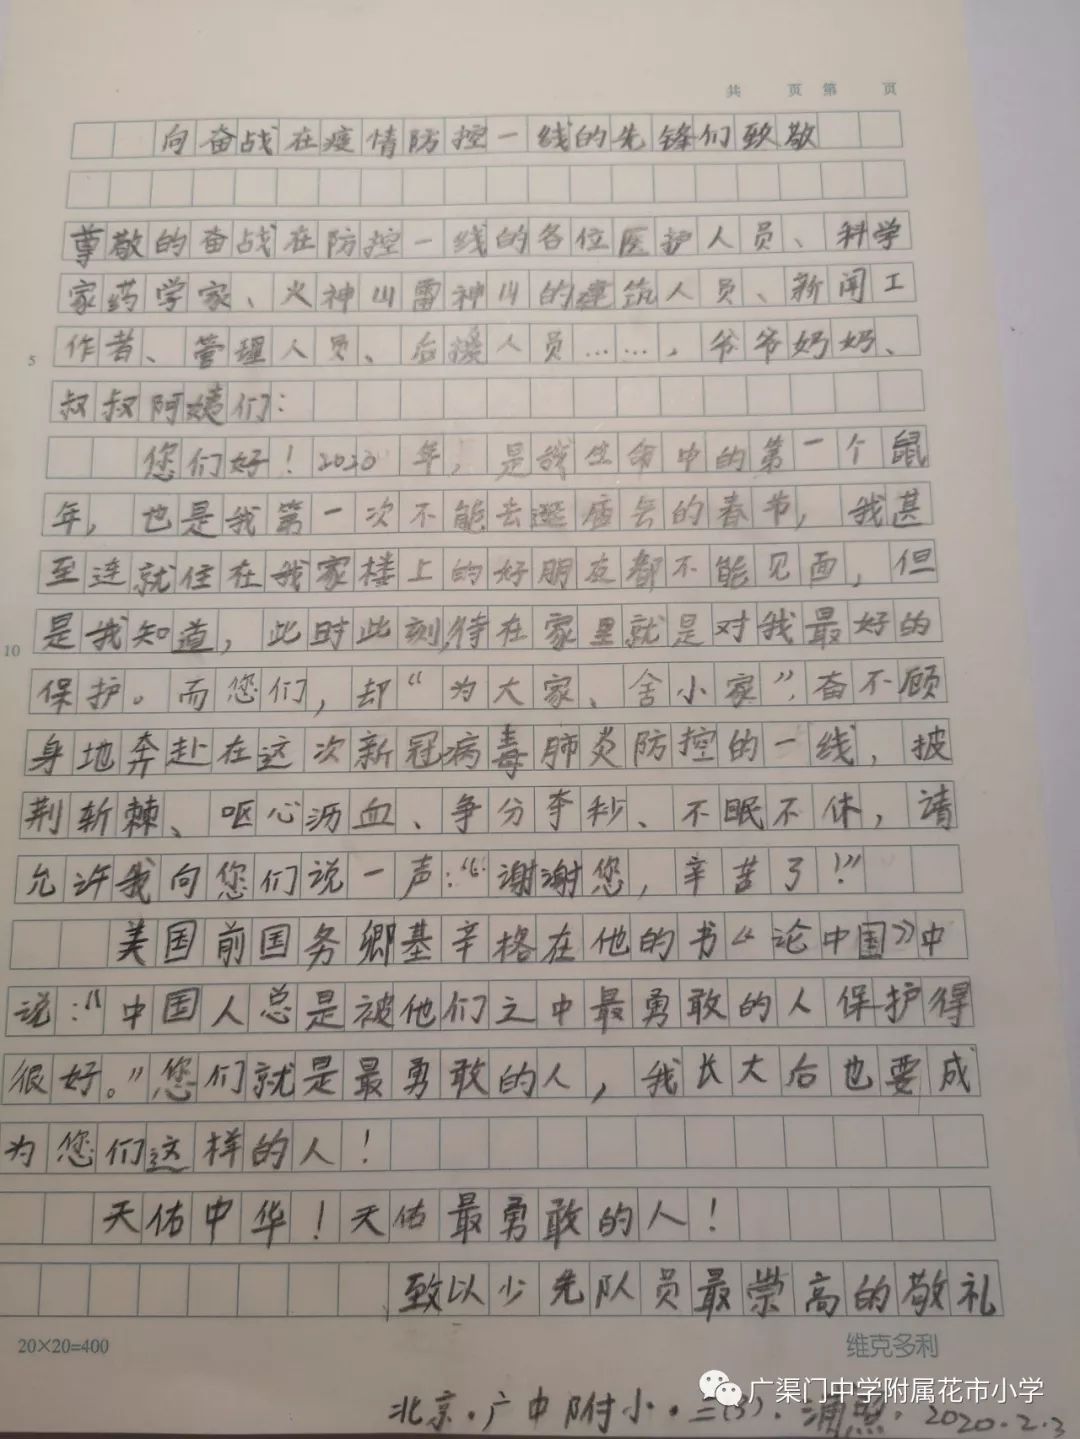 共 页 第 页
向奋战在疫情防控一线的先锋们致敬
尊敬的奋战在防控一线的各位医护人员、科学
家药学家、火神山雷神山的建筑人员、新闻工
5
作者、管理人员、后援人员……，爷爷奶奶、
叔叔阿姨们：
您们好！2020年，是我生命中的第一个鼠
年，也是我第一次不能去逛庙会的春节，我甚
至连就住在我家楼上的好朋友都不能见面，但
10
是我知道，此时此刻，待在家里就是对我最好的
保护。而您们，却“为大家、舍小家”，奋不顾
身地奔赴在这次新冠病毒肺炎防控的一线，披
荆斩棘、呕心沥血、争分夺秒、不眠不休，请
允许我向您们说一声：“谢谢您，辛苦了！”
美国前国务卿基辛格在他的书《论中国》中
说：“中国人总是被他们之中最勇敢的人保护得
很好。”您们就是最勇敢的人，我长大后也要成
为您们这样的人！
天佑中华！天佑最勇敢的人！
致以少先队员最崇高的敬礼
20×20=400
维克多利
广渠门中学附属花市小学
北京·广中附小·三(3)·涌照·2020.2.3